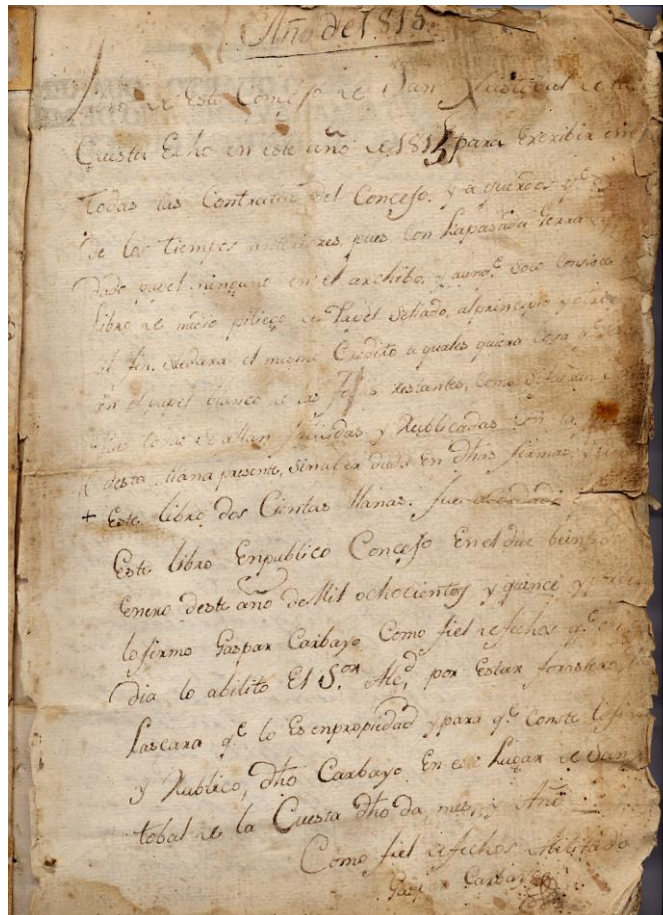 Año de 1815.
Libro de este Concejo de San Xpistobal de la
Cuesta Echo en este año de 1815 para Escribir en el
todas las Contratas del Concejo. y aquerdos
de los tiempos anteriores pues con la pasada Gerra
dado papel ninguno en el archibo, y aunq.e solo consista
Libro de medio pliego de Papel Sellado, al principio y otro
el fin. se dara el mismo Credito a quales quiera cosa
en el papel blanco de las Fojas restantes, Como si fueran
Pues todas se allan y Rublicadas con la
desta llana presente, sin aber duda en dhas firmas,
+ Este libro dos Cientas llanas. fue
Este libro En publico Concejo En el dia
Enero deste año de Mil ochocientos y quince y
lo firmo Gaspar Carbayo Como fiel de fechos q.e
dia lo abilito El S.or Alc.d por Estar forastero,
Lascara q.e lo Es en propiedad y para q.e Conste lo
y Rublico, dho Carbayo En este Lugar de San
tobal de la Cuesta dho dia, mes, y Año
Como fiel de fechos Abilitado
Gasp.r Carbayo